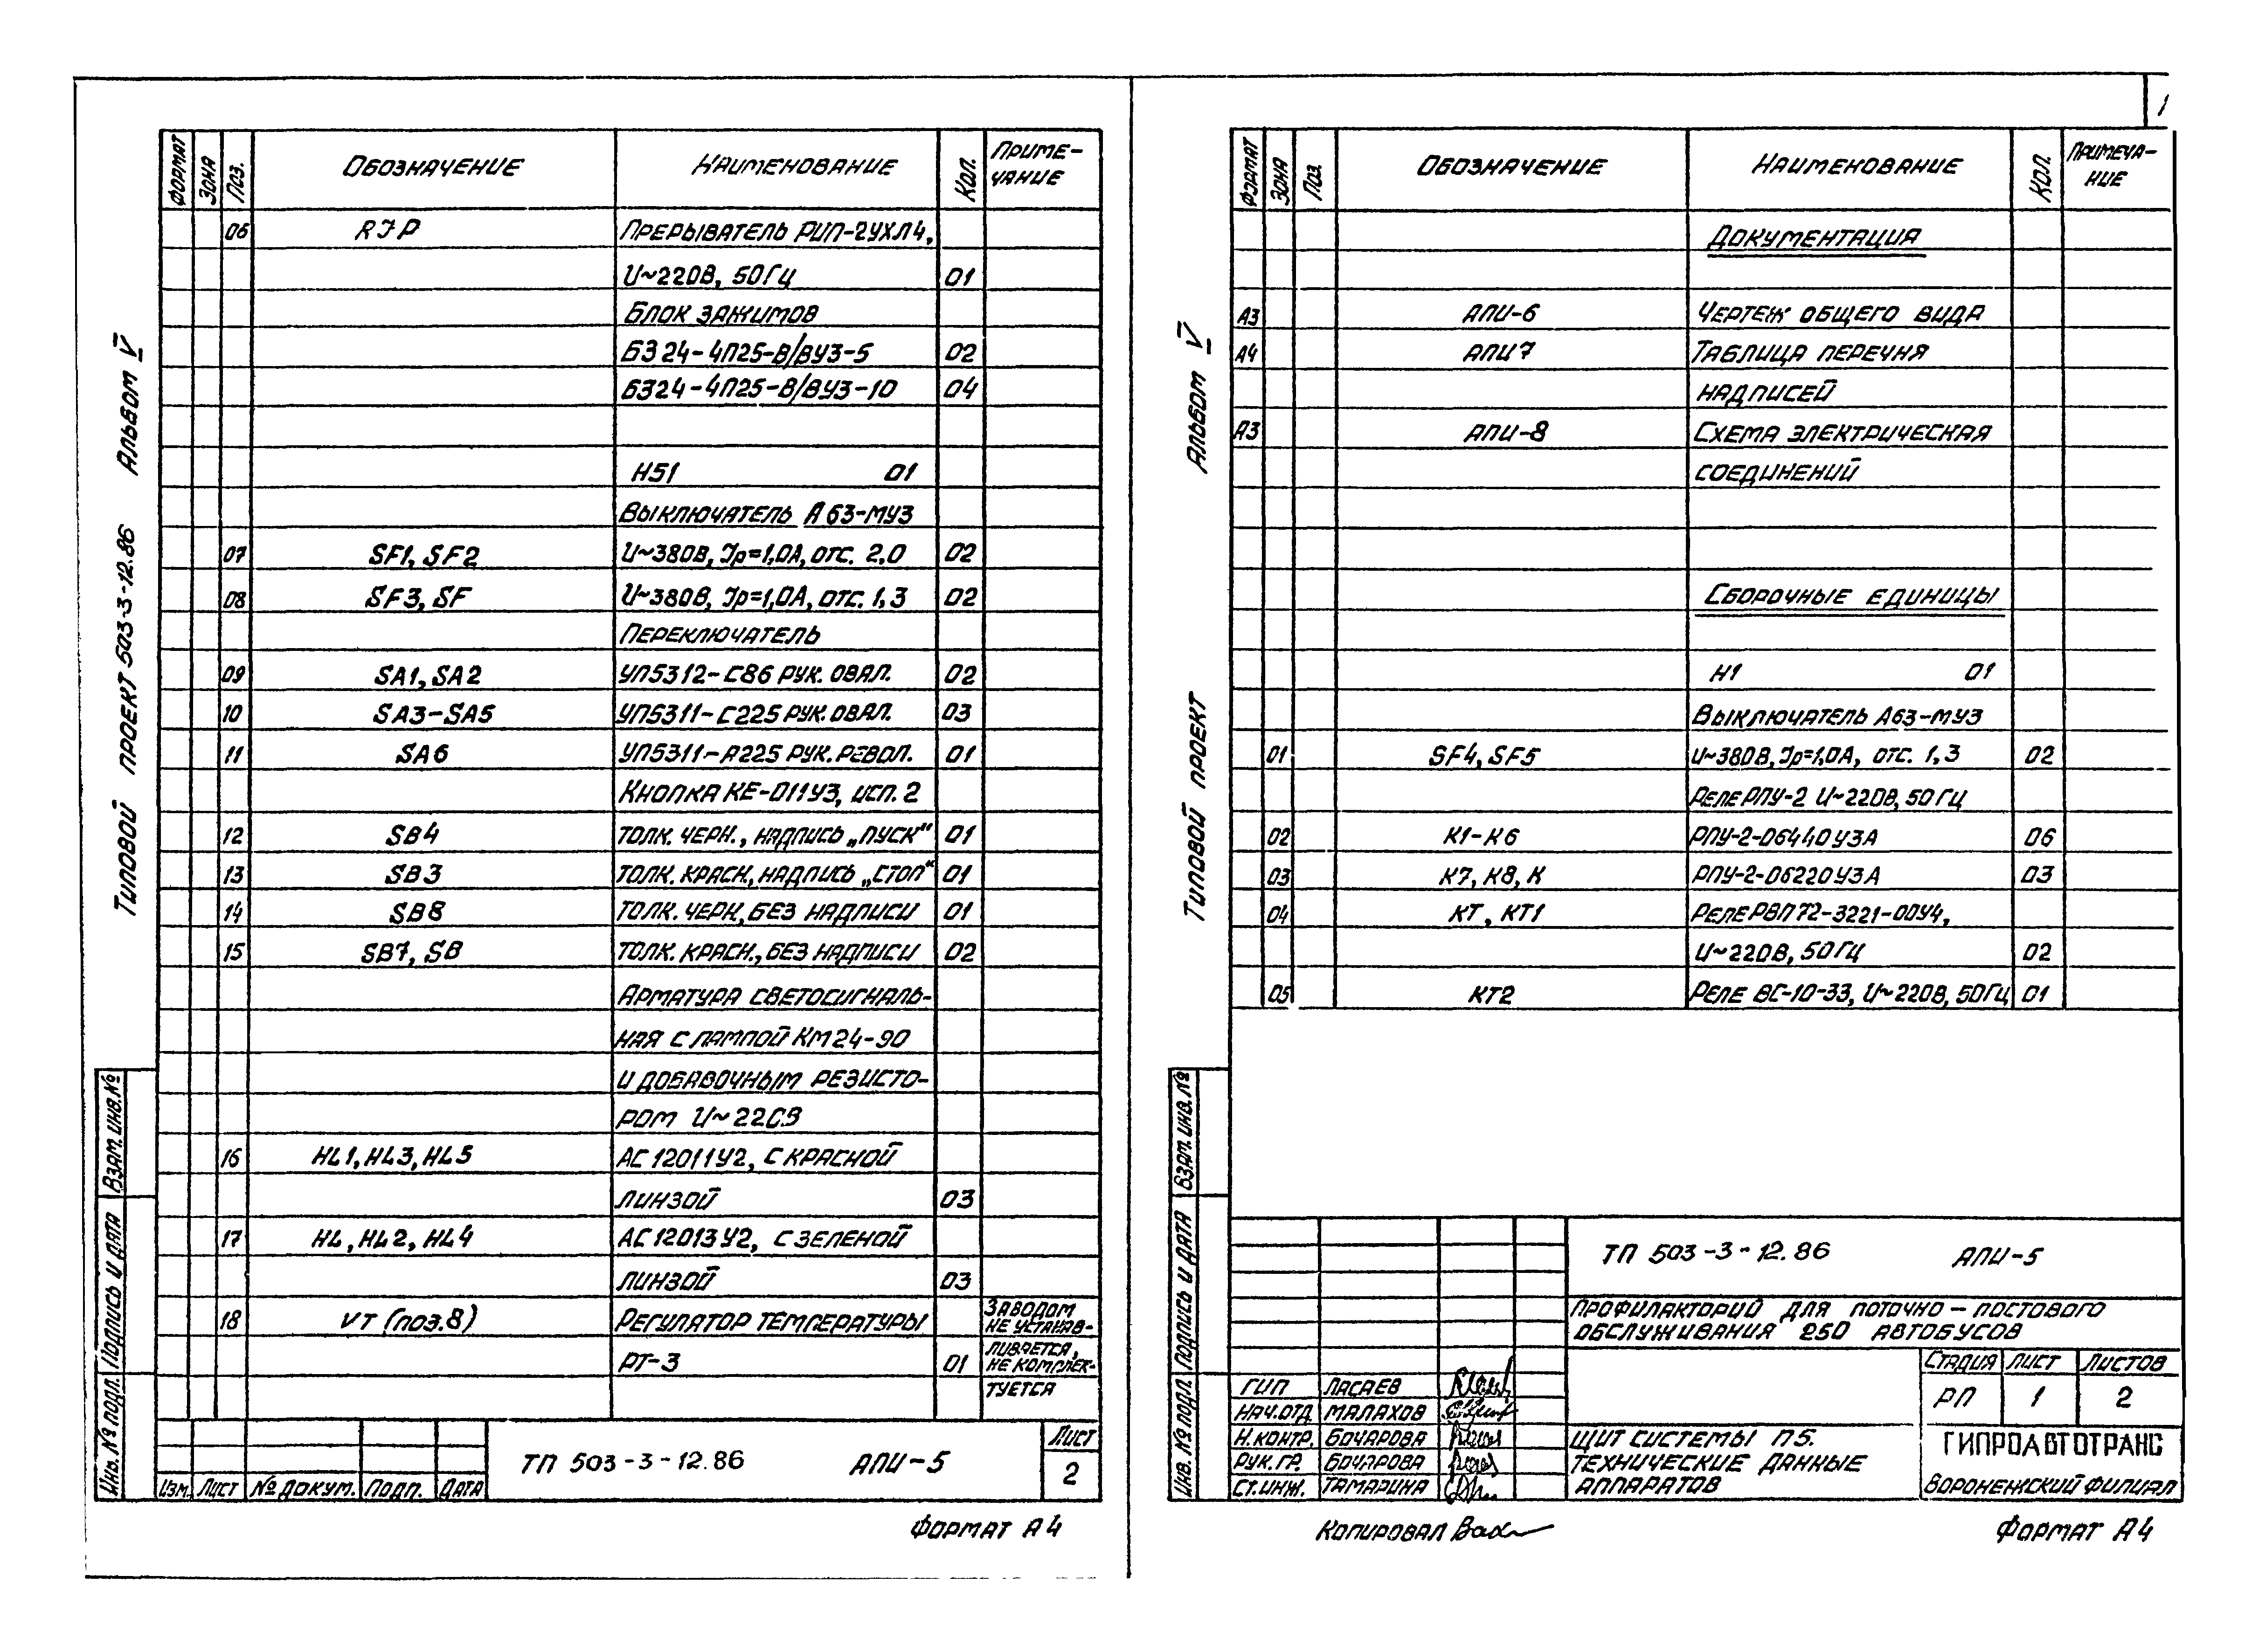 Типовой проект 503-3-12.86 Альбом V
Формат Зона Поз. Обозначение Наименование Кол. Приме-
чание
06 RJP Прерыватель РИП-2УХЛ4,
U~220В, 50Гц 01
Блок зажимов
БЗ 24-4П25-В/ВУЗ-5 02
БЗ24-4П25-В/ВУЗ-10 04
Н51 01
Выключатель А63-МУЗ
07 SF1, SF2 U~380В, Jр=1,0А, отс. 2,0 02
08 SF3, SF U~380В, Jр=1,0А, отс. 1,3 02
Переключатель
09 SA1, SA2 УП5312-С86 рук. овал. 02
10 SA3-SA5 УП5311-С225 рук. овал. 03
11 SA6 УП5311-А225 рук. револ. 01
Кнопка КЕ-011УЗ, исп. 2
12 SB4 толк. черн., надпись „пуск“ 01
13 SB3 толк. красн, надпись „стоп“ 01
14 SB8 толк. черн, без надписи 01
15 SB7, SB толк. красн., без надписи 02
Арматура светосигналь-
ная с лампой КМ24-90
и добавочным резисто-
ром U~220В
16 HL1, HL3, HL5 АС12011У2, с красной
линзой 03
17 HL, HL2, HL4 АС12013У2, с зеленой
линзой 03
18 VT (поз.8) Регулятор температуры Заводом
не устанав-
РТ-3 01 ливается,
не комплек-
туется
Взам. инв. №
Подпись и дата
Инв. № подл.
Изм. Лист № докум. Подп. Дата
ТП 503-3-12.86 АПИ-5
Лист
2
Формат А4
1
Типовой проект Альбом V
Формат Зона Поз Обозначение Наименование Кол. Примеча-
ние
Документация
А3 АПИ-6 Чертеж общего вида
А4 АПИ7 Таблица перечня
надписей
А3 АПИ-8 Схема электрическая
соединений
Сборочные единицы
Н1 01
Выключатель А63-МУЗ
01 SF4, SF5 U~380В, Jр=1,0А, отс. 1,3 02
Реле РПУ-2 U~220В, 50Гц
02 К1-К6 РПУ-2-06440УЗА 06
03 К7, К8, К РПУ-2-06220УЗА 03
04 КТ, КТ1 Реле РВП72-3221-00У4,
U~220В, 50Гц 02
05 КТ2 Реле ВС-10-33, U~220В, 50Гц 01
Взам. инв. №
Подпись и дата
Инв. № подл.
ТП 503-3-12.86 АПИ-5
Профилакторий для поточно-постового
обслуживания 250 автобусов
Стадия Лист Листов
РП 1 2
ГИП Ласаев
Нач.отд Малахов
Н.контр. Бочарова
Рук.гр. Бочарова
Ст.инж. Тамарина
Щит системы П5.
Технические данные
аппаратов
ГИПРОАВТОТРАНС
Воронежский филиал
Копировал
Формат А4